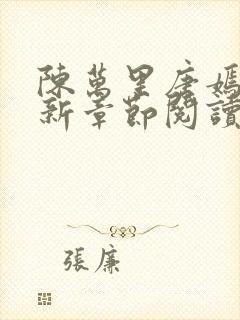 陳萬里唐嫣
新章節閱讀
張廉